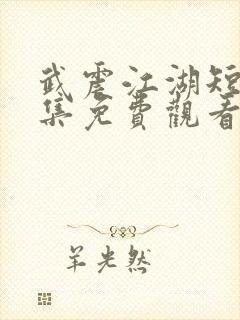 武震江湖短
集免費觀看
羊光然